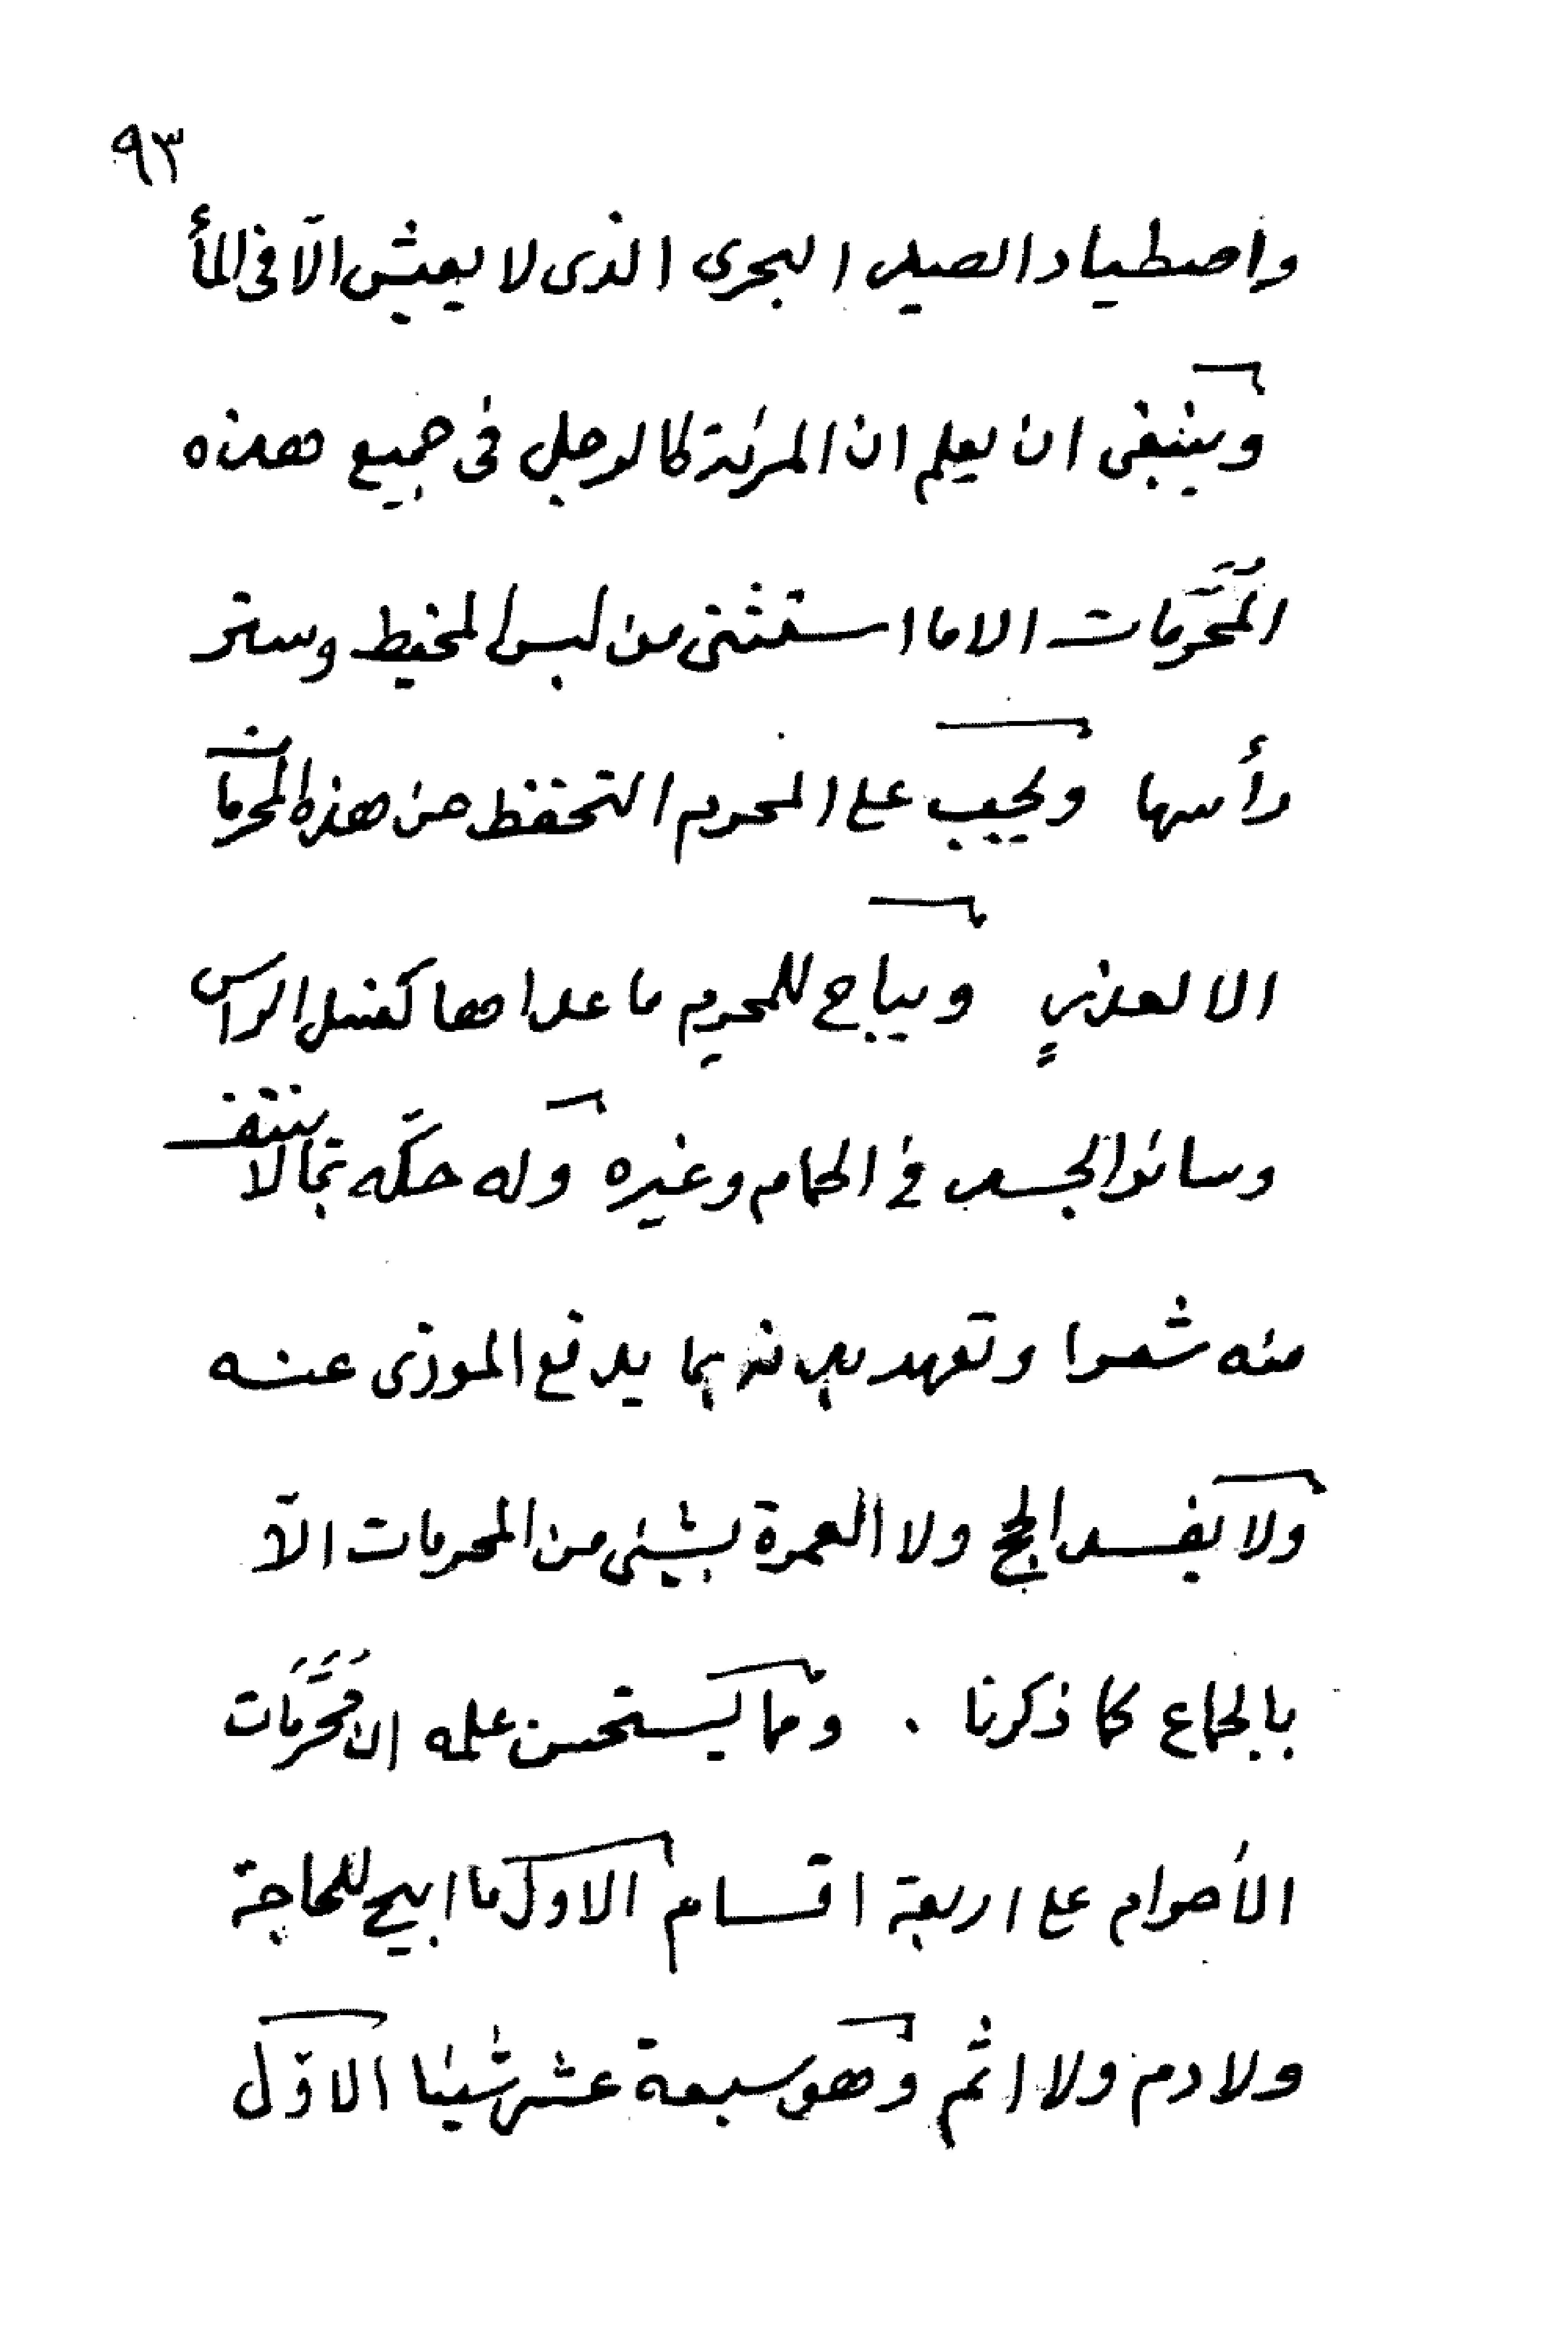 ٩٣
واصطياد الصيد البحرى الذى لا يعيش الّا فى المأ
وينبغى ان يعلم ان المرئة كالرجل فى جميع هذه
المُحَرَّمات الا ما استثنى من لبس المخيط وستر
رأسها ويجب على المحرم التحفظ من هذه المحرمات
الا لعذرٍ ويباح للمحرم ما عداها كغسل الراس
وسائر الجسد فى الحمام وغيره وله حكّه بما لا ينتف
منه شعرا وتعهد بدنه بما يدفع الموذى عنه
ولا يفسد الحج ولا العمرة بشيئ من المحرمات الّا
بالجماع كما ذكرنا . ومّما يستحسن علمه ان مُحَرَّمَات
الأحرام على اربعة اقسام الاول ما ابيح للحاجة
ولا دم ولا اثم وهو سبعة عشر شيئا الاوّل